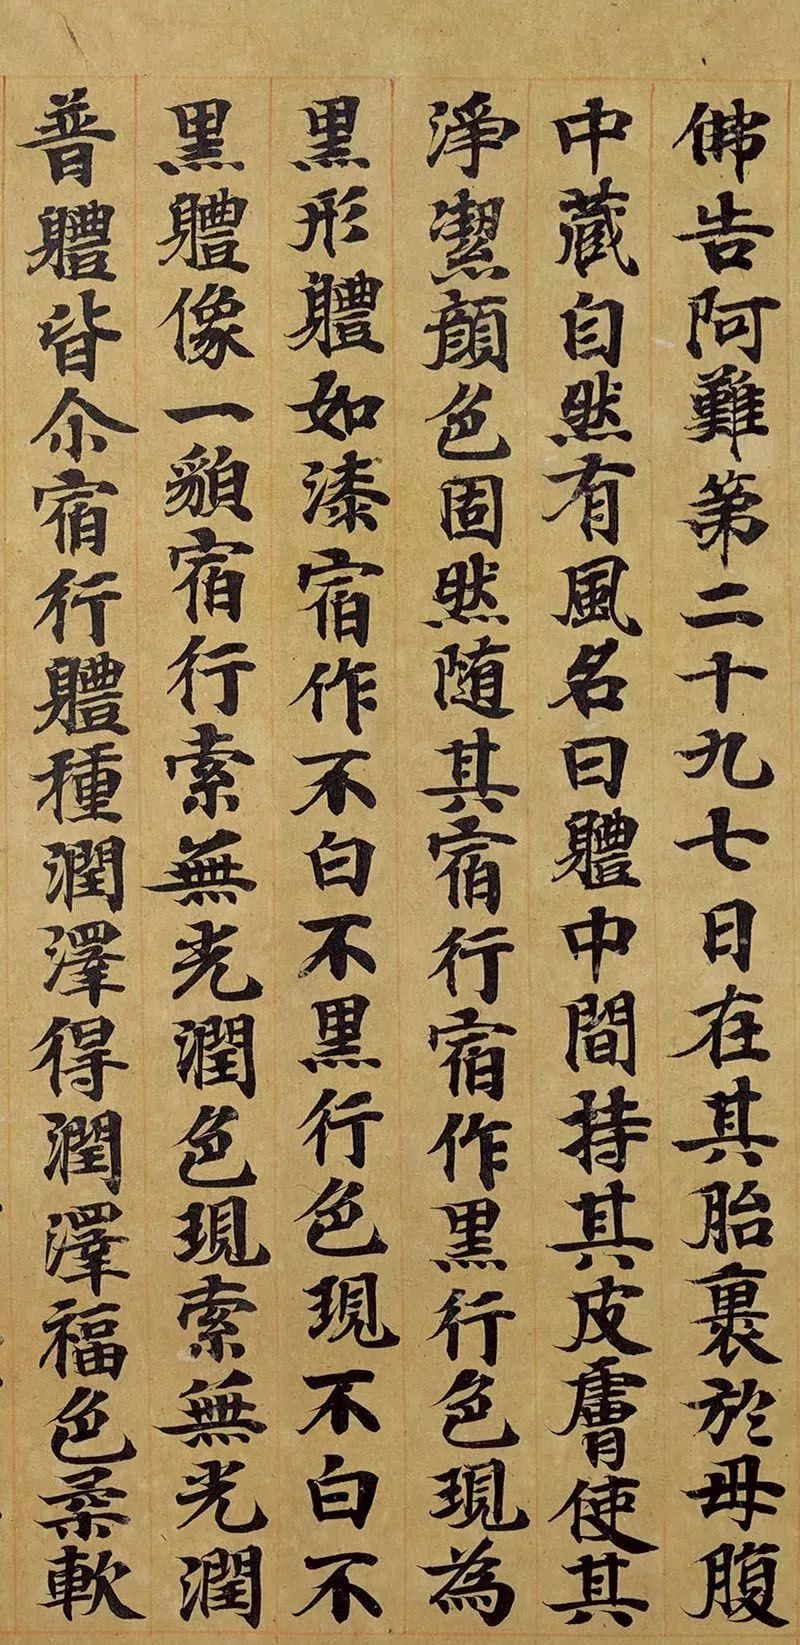 佛告阿難第二十九七日在其胎裹於母腹
中藏自然有風名曰軆中間持其皮膚使其
淨潔顏色固然随其宿行宿作黑行色現為
黑形軆如漆宿作不白不黑行色現不白不
黑軆像一貌宿行索無光潤色現索無光潤
普軆皆尒宿行軆種潤澤得潤澤福色柔軟